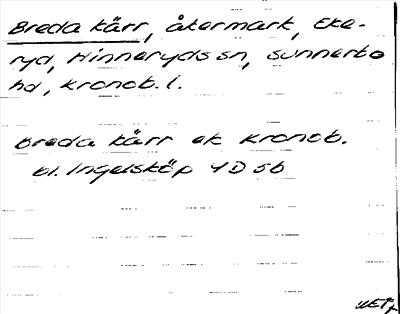 Breda kärr, åkermark, Eke-
ryd, Hinneryds sn, Sunnerbo
hd, Kronob. l.
Breda kärr ek Kronob.
bl. Ingelsköp 4D 5b